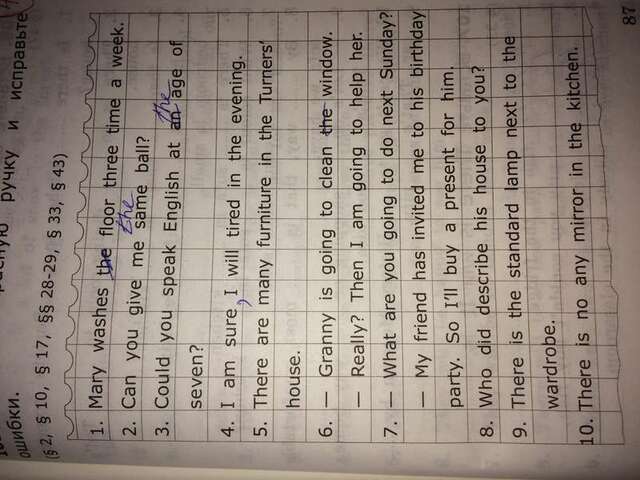 ручку и исправьте
ошибки.
(§ 2, § 10, § 17, §§ 28-29, § 33, § 43)
1. Mary washes the floor three time a week.
the
2. Can you give me same ball?
the
3. Could you speak English at an age of
seven?
4. I am sure, I will tired in the evening.
5. There are many furniture in the Turners'
house.
6. — Granny is going to clean the window.
— Really? Then I am going to help her.
7. — What are you going to do next Sunday?
— My friend has invited me to his birthday
party. So I'll buy a present for him.
8. Who did describe his house to you?
9. There is the standard lamp next to the
wardrobe.
10. There is no any mirror in the kitchen.
87